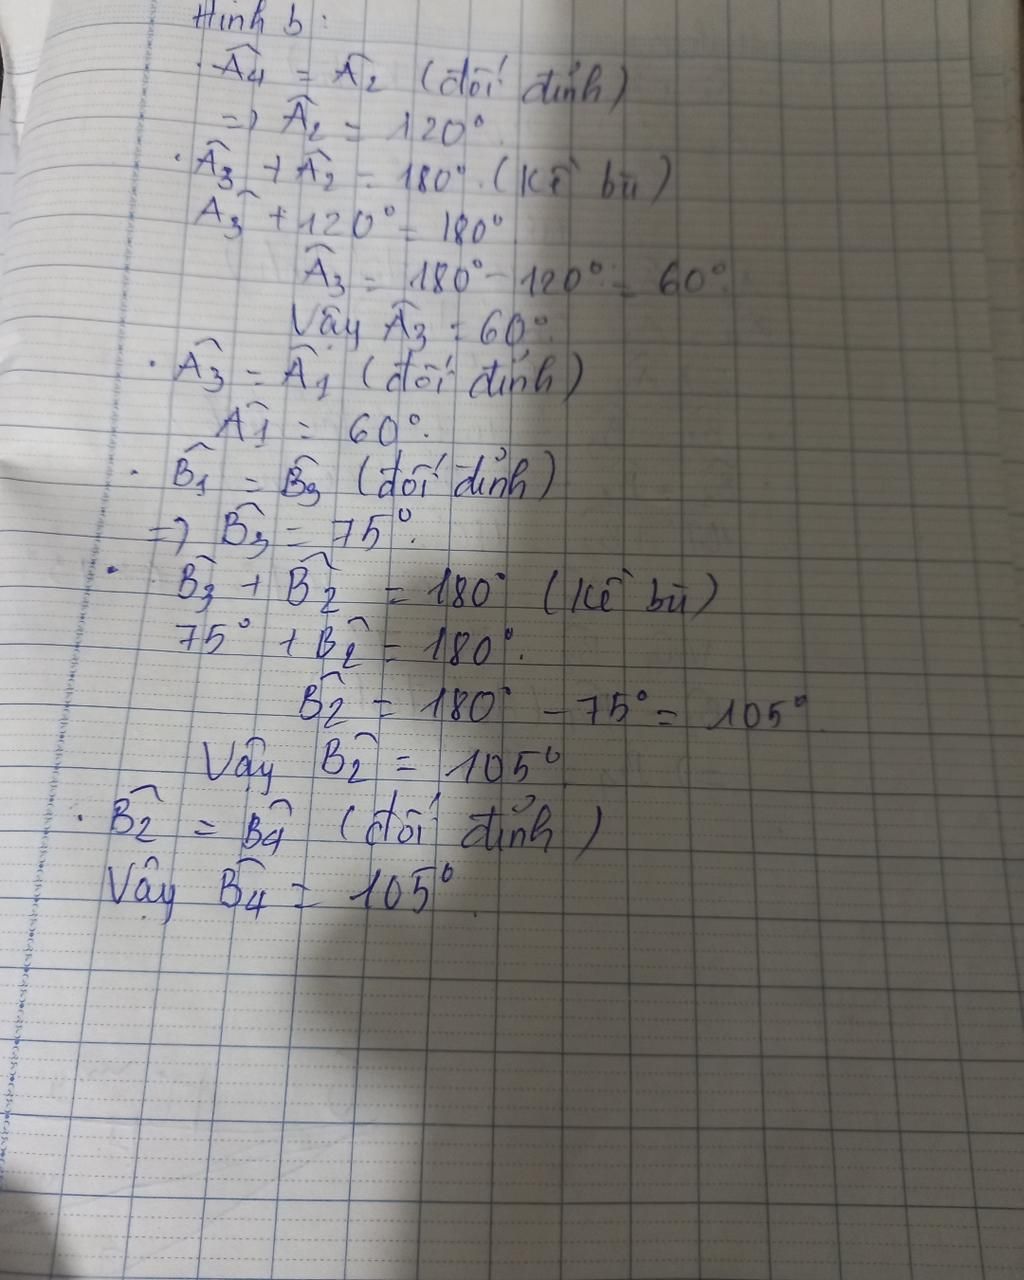 Hình b:
· Â4 = Â2 (đối đỉnh)
=> Â2 = 120°
· Â3 + Â2 = 180°. (Kề bù)
Â3 + 120° = 180°
Â3 = 180° - 120° = 60°
Vây Â3 = 60°.
· Â3 = Â1 (đối đỉnh)
Â1 = 60°.
· B̂1 = B̂3 (đối đỉnh)
=> B̂3 = 75°.
· B̂3 + B̂2 = 180° (Kề bù)
75° + B̂2 = 180°.
B̂2 = 180° - 75° = 105°
Vây B̂2 = 105°
· B̂2 = B̂4 (đối đỉnh)
Vây B̂4 = 105°.